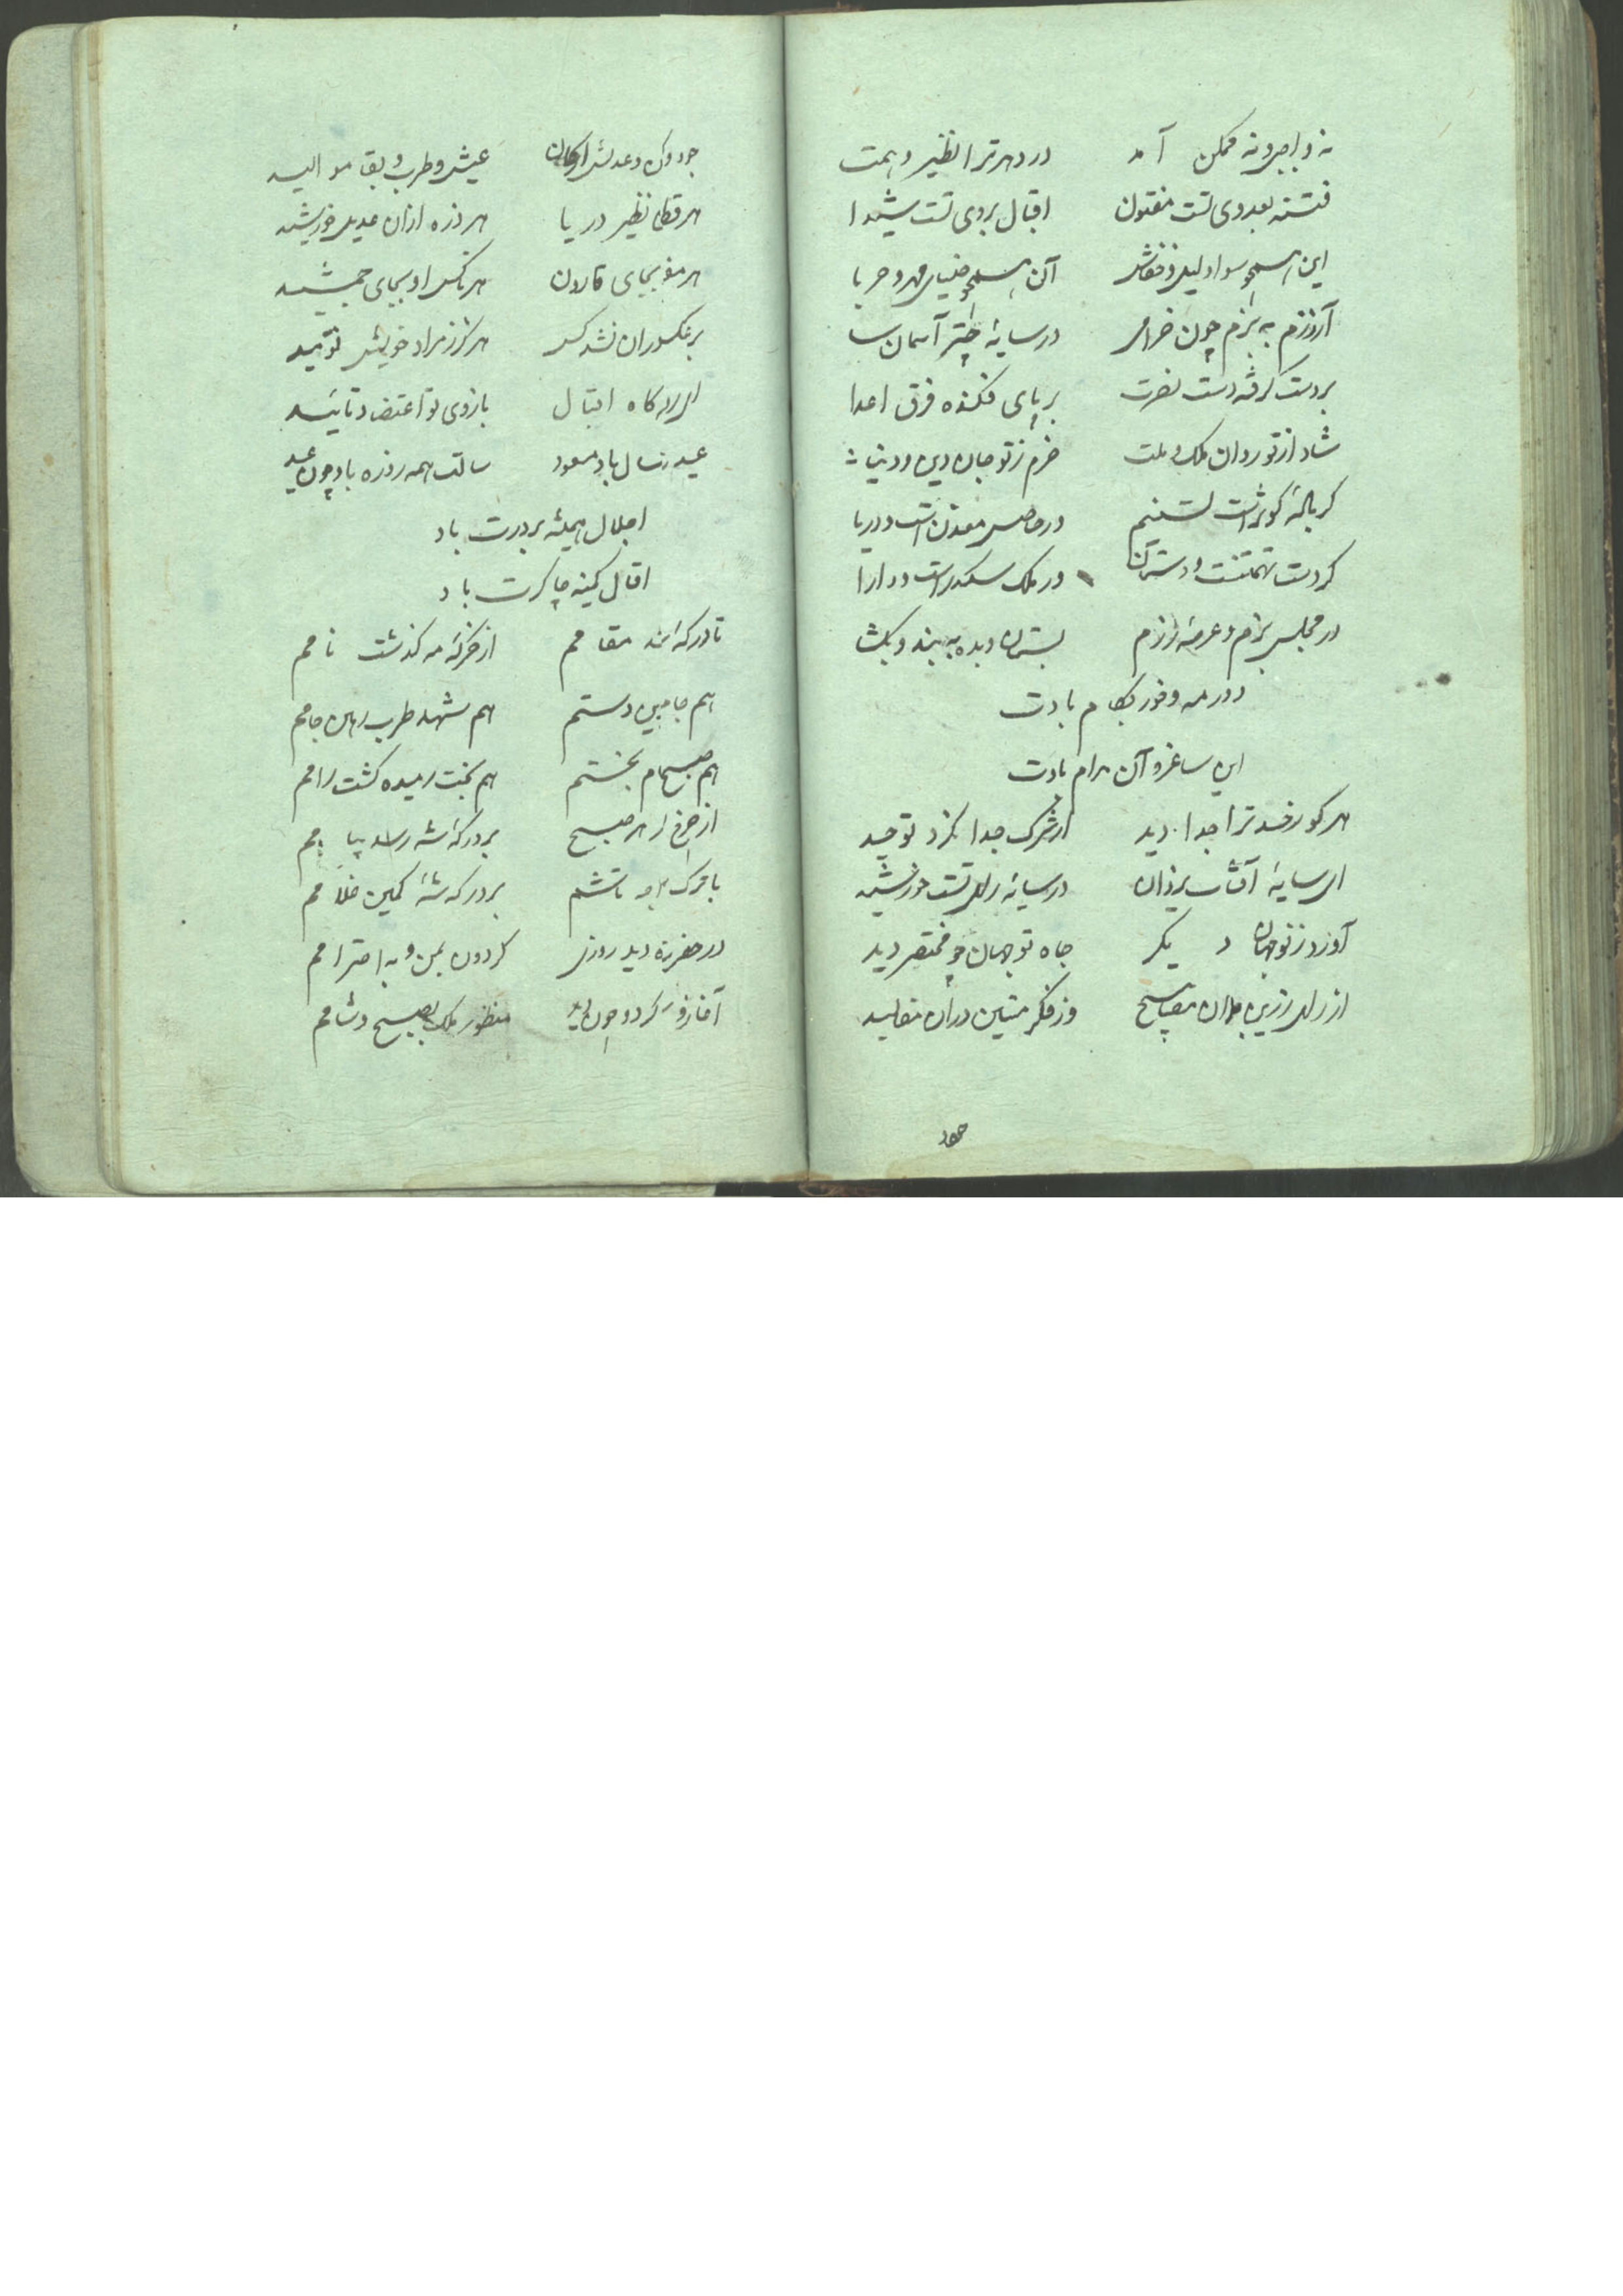 نه واجب و نه ممکن آمد در دهر ترا نظیر و همت
فتنه بعدوی تست مفتون اقبال بروی تست شیدا
این همچو سواد لیل و خفاش آن همچو ضیای مهر و حربا
آن رزم به بزم چون خرامی در سایهٔ چتر آسمان سا
بردست گرفته دست نصرت بر پای فکنده فرق اعدا
شاد از تو روان ملک و ملت خرم ز تو جان دین و دنیا
کریاله کوثر است تسنیم در معدن است و دریا
کر دست تهمتنست و دستان ور ملک سکندر است و دارا
در مجلس بزم و عرصهٔ رزم بستان و بده ببند و بکشا
دور مه و خور بکام بادت
این ساغر و آن مرام بادت
هر کو ز خدا ترا جدا دید از شرک جدا نکرد توحید
ای سایهٔ آفتاب یزدان در سایهٔ رای تست خورشید
آورد ز نو جهان دیگر جاه تو جهان چو مختصر دید
از رای رزین بران مصابیح وز فکر متین دران مقالید
جود و عدلش ارکان عیش و طرب و بقا موالید
هر قطره نظیر دریا هر ذره ازان عدیل خورشید
هر مفلس بجای قارون هر ناکس او بجای جمشید
بر غمکدران نشد کس هرگز ز مراد خویش نومید
ای درگاه اقبال بازوی تو اعتضاد و تائید
عید رسال باد مسعود سالت همه روزه باد چون عید
اجلال همیشه بر درت باد
اقبال کمینه چاکرت باد
تا درکه شد مقامم از خرکه مه گذشت نامم
هم جامیین دستم هم شهد طرب رهین جامم
هم صبح بختم هم بخت رمیده گشت رامم
از چرخ هر صبح بر درگه شه رسد پیامم
با بر درگه شه کمین غلامم
در حضرت دید روزی گردون بمن و به احترامم
آغاز کرد و چون منظور ملک بصبح و شامم
جود